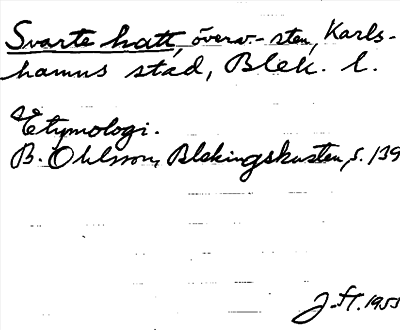 Svarte hatt, överv.- sten, Karls-
hamns stad, Blek. l.
Etymologi.
B. Ohlsson, Blekingskusten, s. 139
J.Ht. 1953